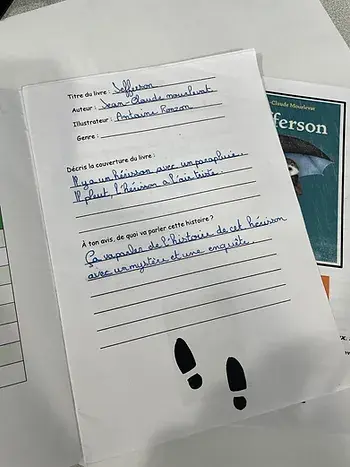 Titre du livre : Jefferson
Auteur : Jean-Claude mourlevat
Illustrateur : Antoine Ronzon
Genre :
Décris la couverture du livre :
Il y a un hérisson avec un parapluie.
Il pleut, l'hérisson a l'air triste.
À ton avis, de quoi va parler cette histoire ?
Ça va parler de l'histoire de cet hérisson
avec un mystère et une enquête.
-Claude Mourlevat
fferson